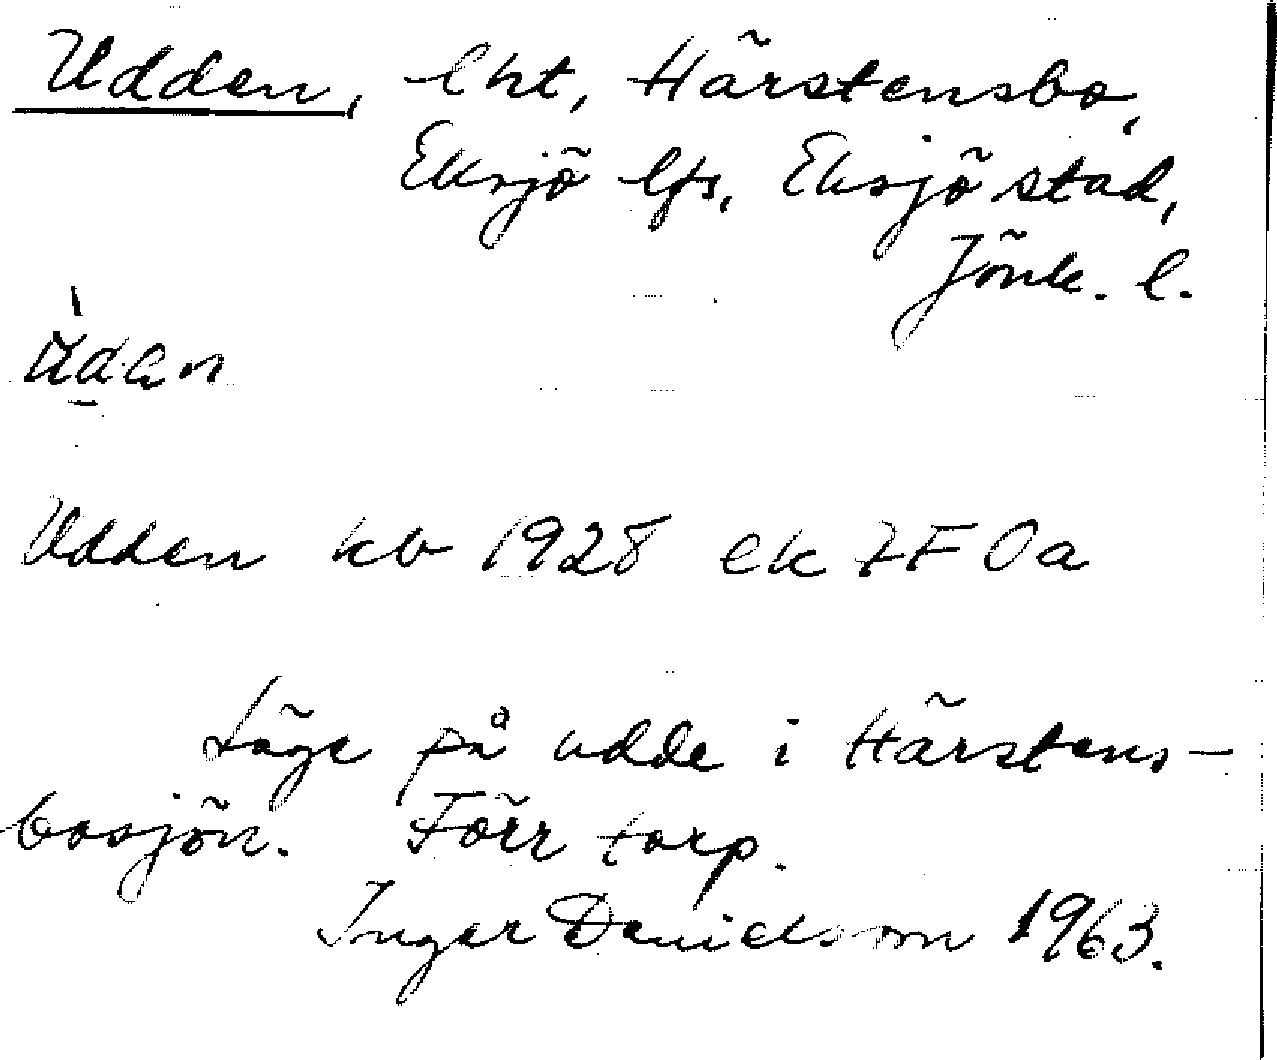 Udden, lht, Härstensbo,
Eksjö lfs, Eksjö stad,
Jönk. l.
Udden kb 1928 ek 7F 0a
Läge på udde i Härstens-
bosjön. Förr torp.
Inger Danielsson 1963.